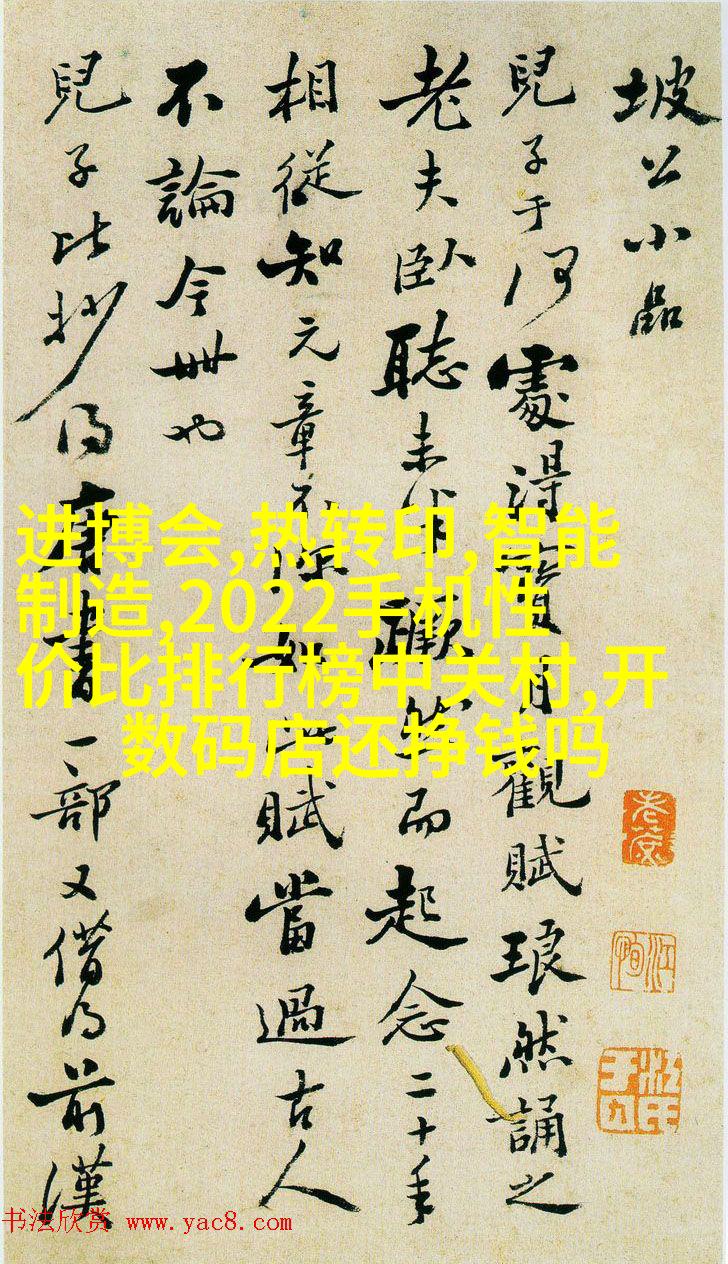 坡公小品
兒子于何處得寶月觀賦琅然誦之
老夫臥聽未半而起念二十年
相從知元章不如此賦當過古人
不論今世也
兒子比抄得唐書一部又借得前漢
进博会,热转印,智能
制造,2022手机性
价比排行榜中关村,开
数码店还挣钱吗
书法欣赏 www.yac8.com